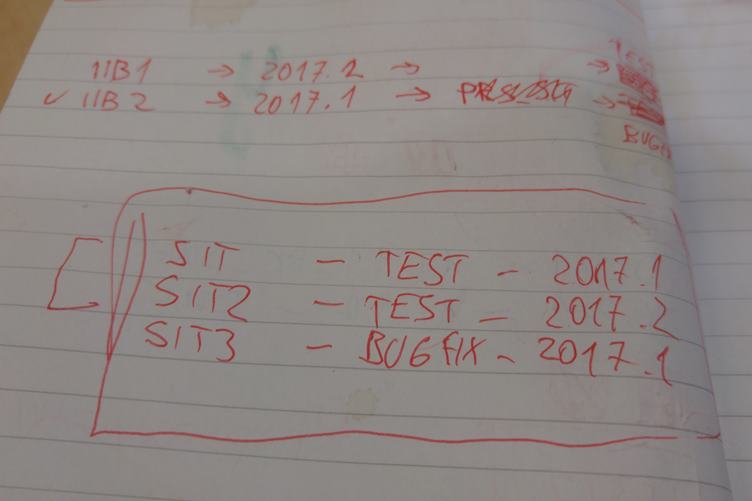 TEST
IIB1 → 2017.2 → →
✓ IIB2 → 2017.1 → →
BUGFIX
SIT - TEST - 2017.1
SIT2 - TEST - 2017.2
SIT3 - BUGFIX - 2017.1